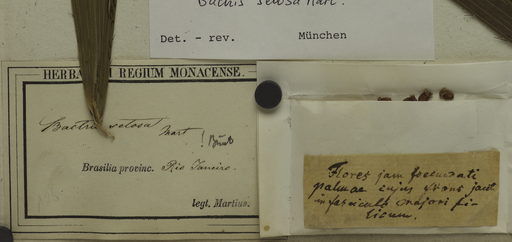 Bactris setosa Mart.
Det. - rev. München
HERBARIUM REGIUM MONACENSE.
Bactris setosa Mart
Brasilia provinc. Rio Janeiro.
legt. Martius.
Flores jam foecundati
palmae cujus frons jacet
in fasciculo majori fi-
licum.